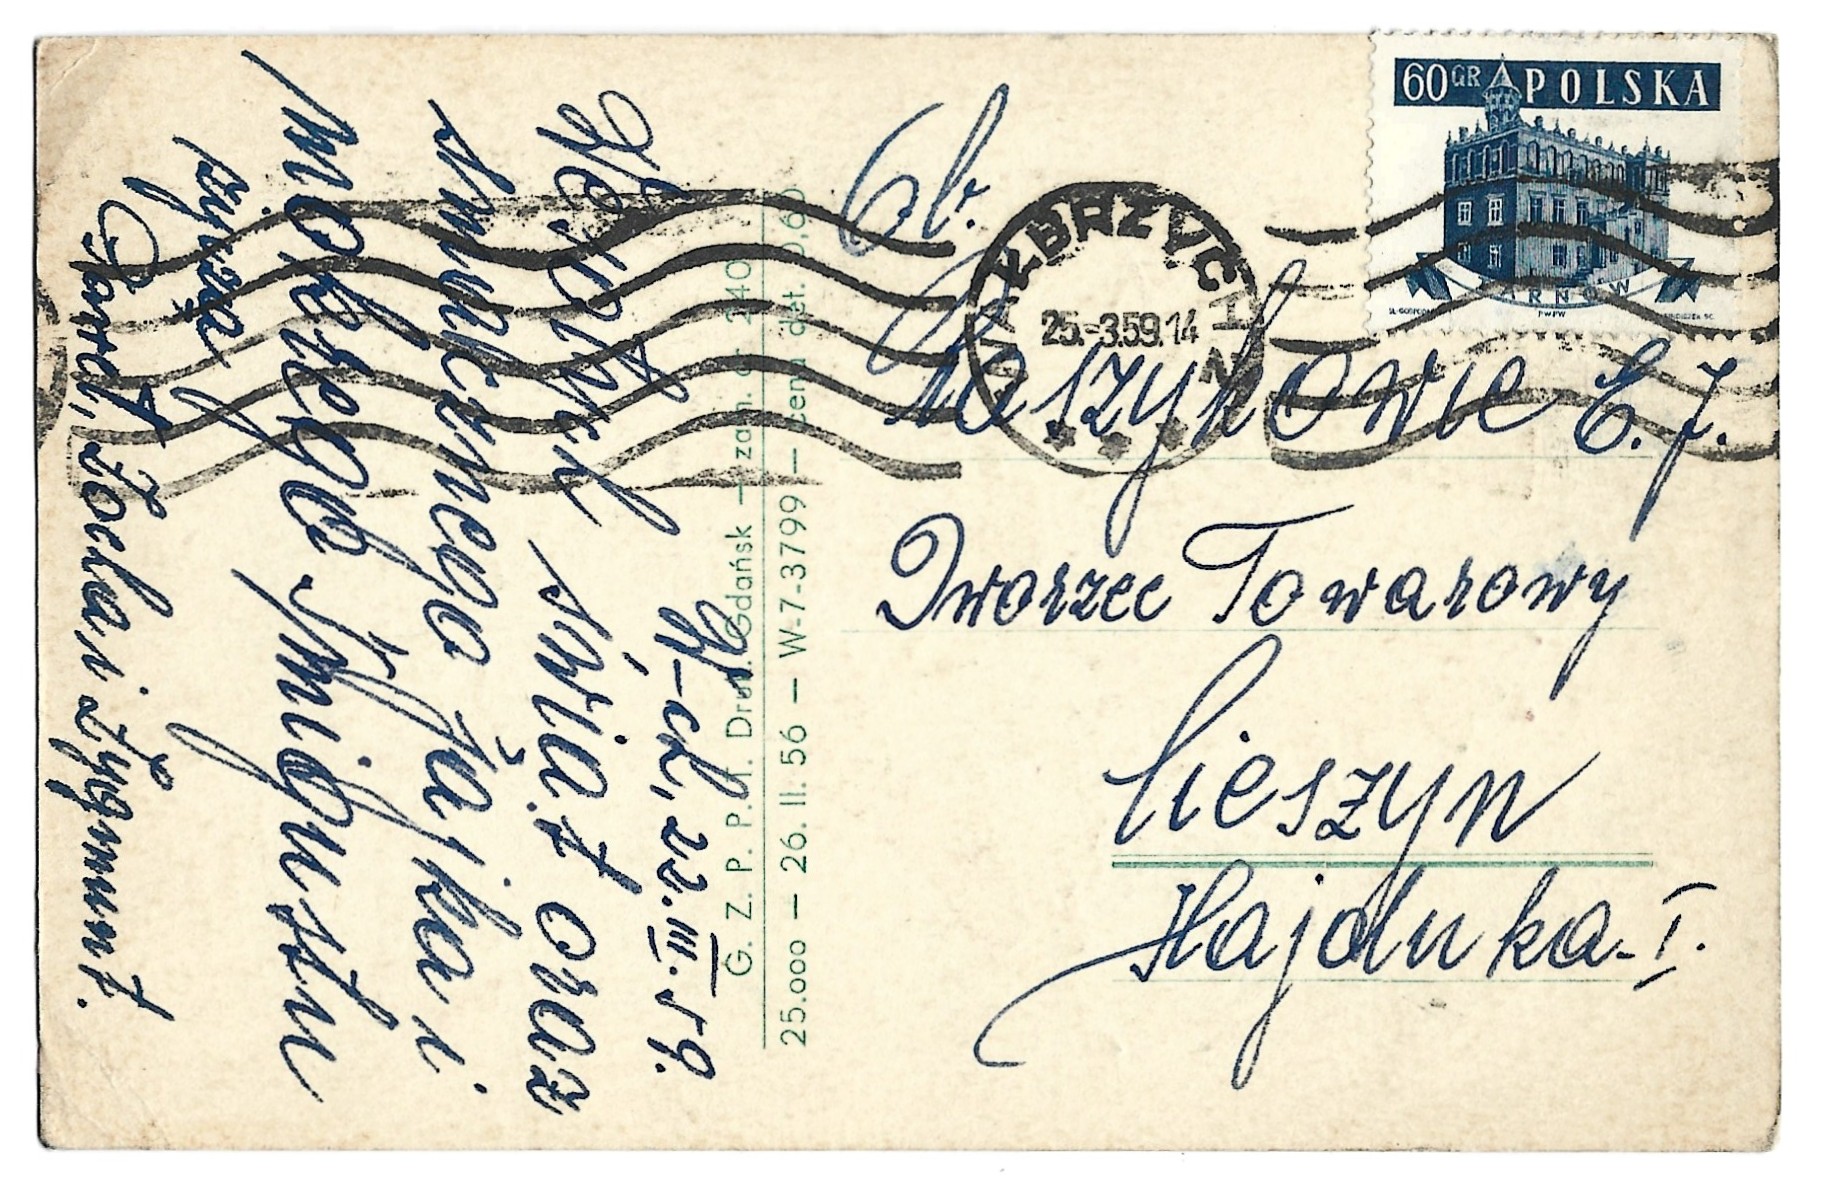 W-ch, 22.III.59.
Wesołych świąt oraz
smacznego Jajka i
mokrego Śmigustu
życzą
Zocha i Zygmunt.
G. Z. P. P. I. Druk. Gdańsk – zam.
25.000 – 26. II. 56 – W-7-3799 – cena det. 0,60
60 GR POLSKA
TARNÓW
WAŁBRZYCH
25.-3.59.14
Ob.
Raszykowie E. J.
Dworzec Towarowy
Cieszyn
Hajduka-I.